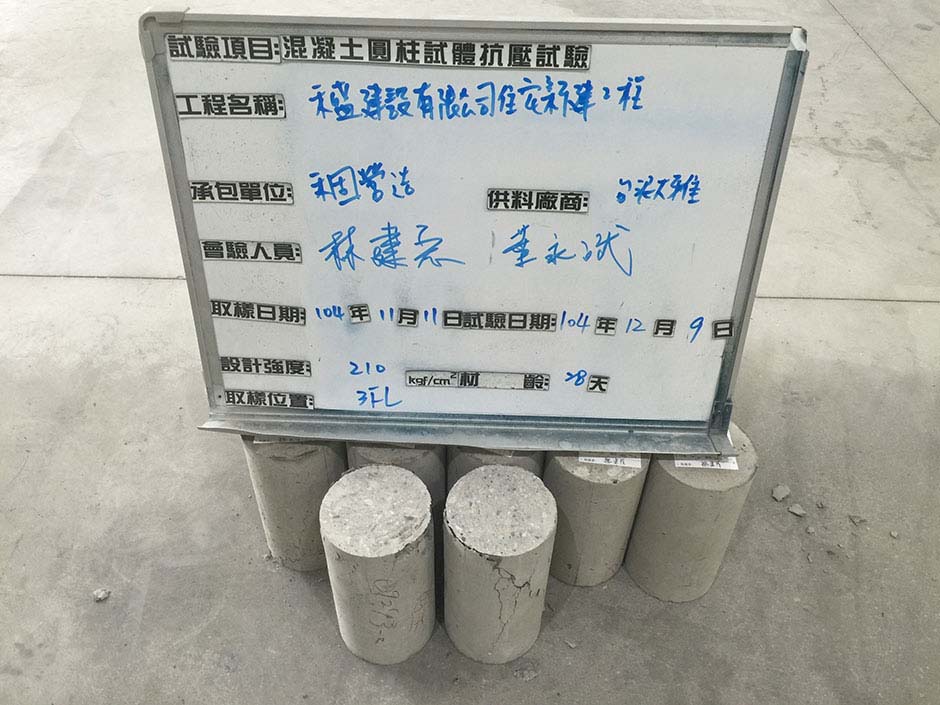 試驗項目: 混凝土圓柱試體抗壓試驗
工程名稱: 禾益建設有限公司住宅新建工程
承包單位: 禾固營造 供料廠商: 台泥大雅
會驗人員: 林建宏 葉永斌
取樣日期: 104年11月11日 試驗日期: 104年12月9日
設計強度: 210 kgf/cm² 材齡: 28天
取樣位置: 3FL